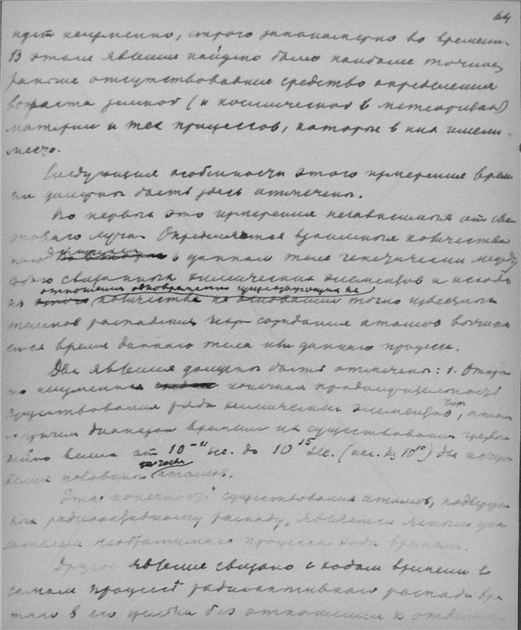 64
идет неизменно, строго закономерно во времени.
В этом явлении найдено было наиболее точное,
раньше отсутствовавшее средство определения
возраста земной (и космической в метеоритах)
материи и тех процессов, которые в них имели
место.
Следующие особенности этого измерения време
ни должны быть здесь отмечены.
Во первых это измерения независимы от све
тового луча. Определяется взаимные количества
в данном теле генетически между
собою связанных химических элементов и исходя
из количества на основании точно известных
темпов распадения и создания атомов вычисля
ется время данного тела или данного процесса.
Два явления должны быть отмечены: 1.
неизменная конечная продолжительность
существования ряда химических элементов,
причем диапазон времени их существования
велик от 10⁻¹¹ сек. до 10¹⁵ сек. (10¹⁰)
половины атомов.
Эта конечность существования атомов, подвержен
ных радиоактивному распаду, является ясным ука
зателем необратимого процесса хода времени.
Другое явление связано с ходом времени в
самом процессе радиоактивного распада
в его целом без отношения к